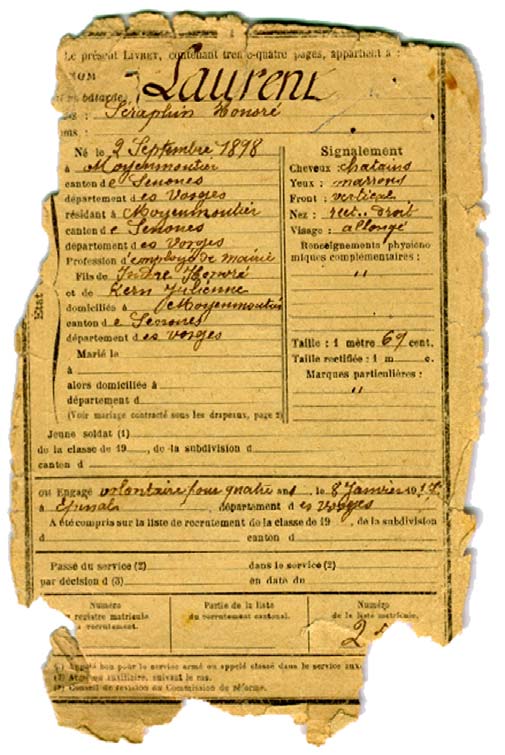 Le présent LIVRET, contenant trente-quatre pages, appartient à :
NOM Laurent
Séraphin Honoré
Né le 2 Septembre 1898
à Moyenmoutier
canton de Senones
département des Vosges
résidant à Moyenmoutier
canton de Senones
département des Vosges
Profession d'employé de mairie
Fils de Honoré
et de Kern Julienne
domiciliés à Moyenmoutier
canton de Senones
département des Vosges
Marié le
à
alors domiciliée à
département d
(Voir mariage contracté sous les drapeaux, page 2)
Etat
Signalement
Cheveux : chatains
Yeux : marrons
Front : vertical
Nez : rect. droit
Visage : allongé
Renseignements physionomiques complémentaires :
"
Taille : 1 mètre 69 cent.
Taille rectifiée : 1 m c.
Marques particulières :
"
Jeune soldat (1)
de la classe de 19 , de la subdivision d
canton d
ou Engagé volontaire pour quatre ans , le 8 Janvier 1917
à Épinal , département des Vosges
A été compris sur la liste de recrutement de la classe de 19 , de la subdivision
d canton d
Passé du service (2) dans le service (2)
par décision d (3) en date du
Numéro
registre matricule
recrutement.
Partie de la liste
du recrutement cantonal.
Numéro
de la liste matricule.
2
(1) Appelé bon pour le service armé ou appelé classé dans le service
(2) Armé ou auxiliaire, suivant le cas.
(3) Conseil de révision ou Commission de réforme.